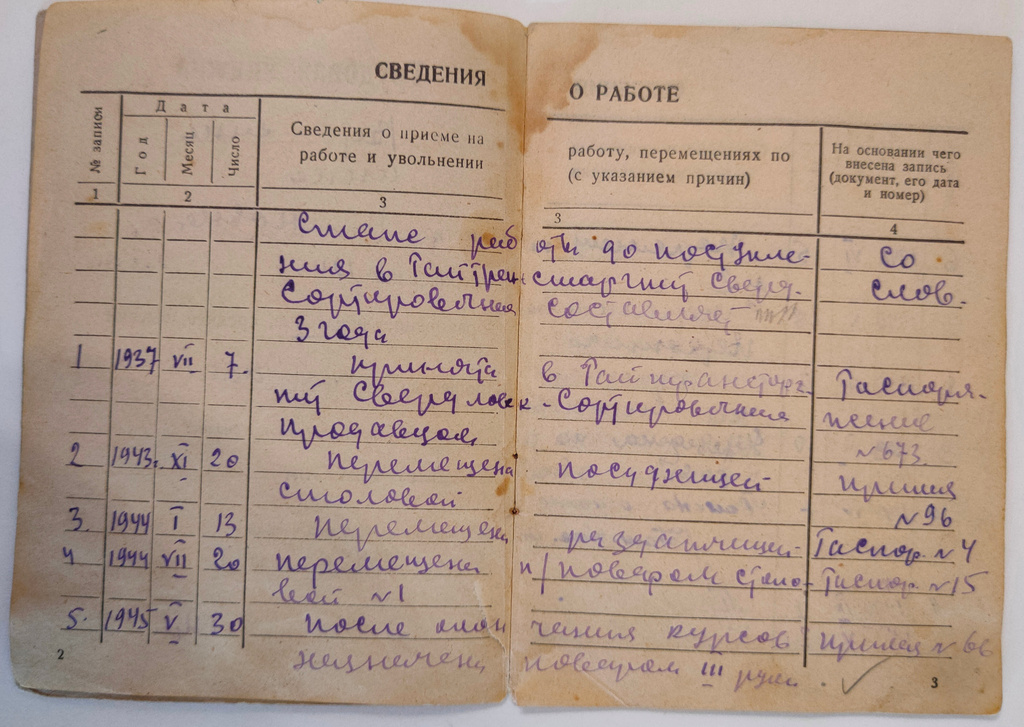 СВЕДЕНИЯ О РАБОТЕ
№ записи
Дата
Год
Месяц
Число
Сведения о приеме на работу, перемещениях по
работе и увольнении (с указанием причин)
На основании чего
внесена запись
(документ, его дата
и номер)
1 2 3 3 4
Стаж работы до поступле- со
ния в Свердл. слов.
Сортировочная составляет
3 года
1 1937 VII 7. принята в
Свердловск-Сортировочная №673.
продавцом
2 1943. XI 20 перемещена посудницей приказ
столовой №96
3. 1944 I 13 перемещена раздатчицей №4
4 1944 VII 20 перемещена п/поваром столо- №15
вой №1
5. 1945 V 30 после окончания курсов приказ №66
назначена поваром III
2
3